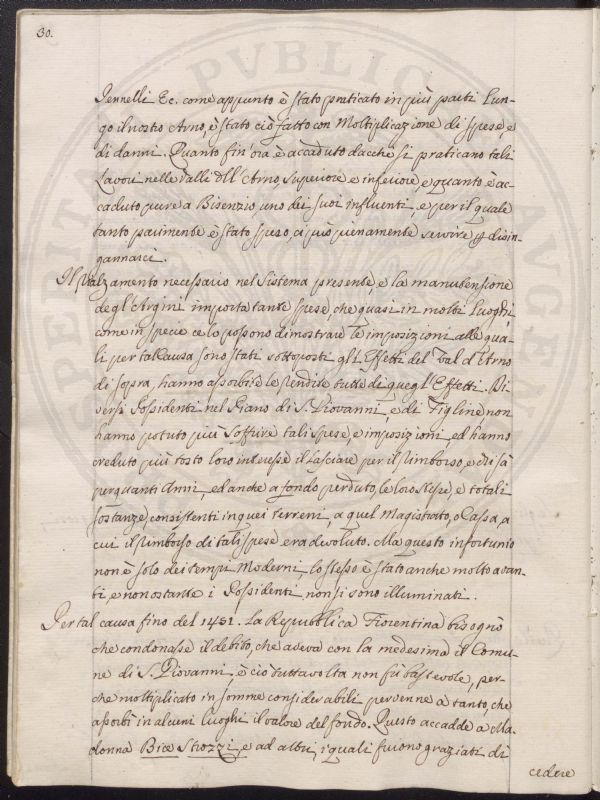 30.
Pennelli Ec. come appunto è stato praticato in più parti Lun-
go il nostro Arno, è stato ciò fatto con Moltiplicazione di spese, e
di danni. Quanto fin' ora è accaduto dacche si praticano tali
Lavori nelle Valli dell'Arno, superiore e inferiore, e quanto è ac-
caduto pure a Bisenzio uno dei suoi influenti, e per il quale
tanto parimente è stato speso, ci può pienamente servire p disin-
gannarci.
Il Rialzamento necessario nel Sistema presente, e la manutensione
degl'Argini importa tante spese, che quasi in molti Luoghi,
come in specie ce lo possono dimostrare le imposizioni alle qua-
li per tal Causa sono stati sottoposti gli Effetti del Val d'Arno
di sopra, hanno assorbite le rendite tutte di quegl'Effetti. Di
versi Possidenti nel Piano di S. Giovanni, e di Figline non
hanno potuto più soffrire tali spese, e imposizioni, ed hanno
creduto più tosto loro interesse il Lasciare per il rimborso, e chi sà
per quanti Anni, ed anche a fondo perduto, le loro stesse, e totali
sostanze, consistenti in quei terreni, a quel Magistrato, o Cassa, a
cui il rimborso di tali spese era dovoluto. Ma questo infortunio
non è solo dei tempi Moderni, lo stesso è stato anche molto avan-
ti, e non ostante i Possidenti non si sono illuminati.
Per tal causa fino del 1451. La Repubblica Fiorentina bisognò
che condonasse il debito, che aveva con la medesima il Comu-
ne di S. Giovanni, e ciò tuttavolta non fù bastevole, per-
che moltiplicato in somme considerabili pervenne a tanto, che
assorbì in alcuni Luoghi il valore del fondo. Questo accadde a Ma-
donna Bice Strozzi, e ad altri, i quali furono graziati di
cedere